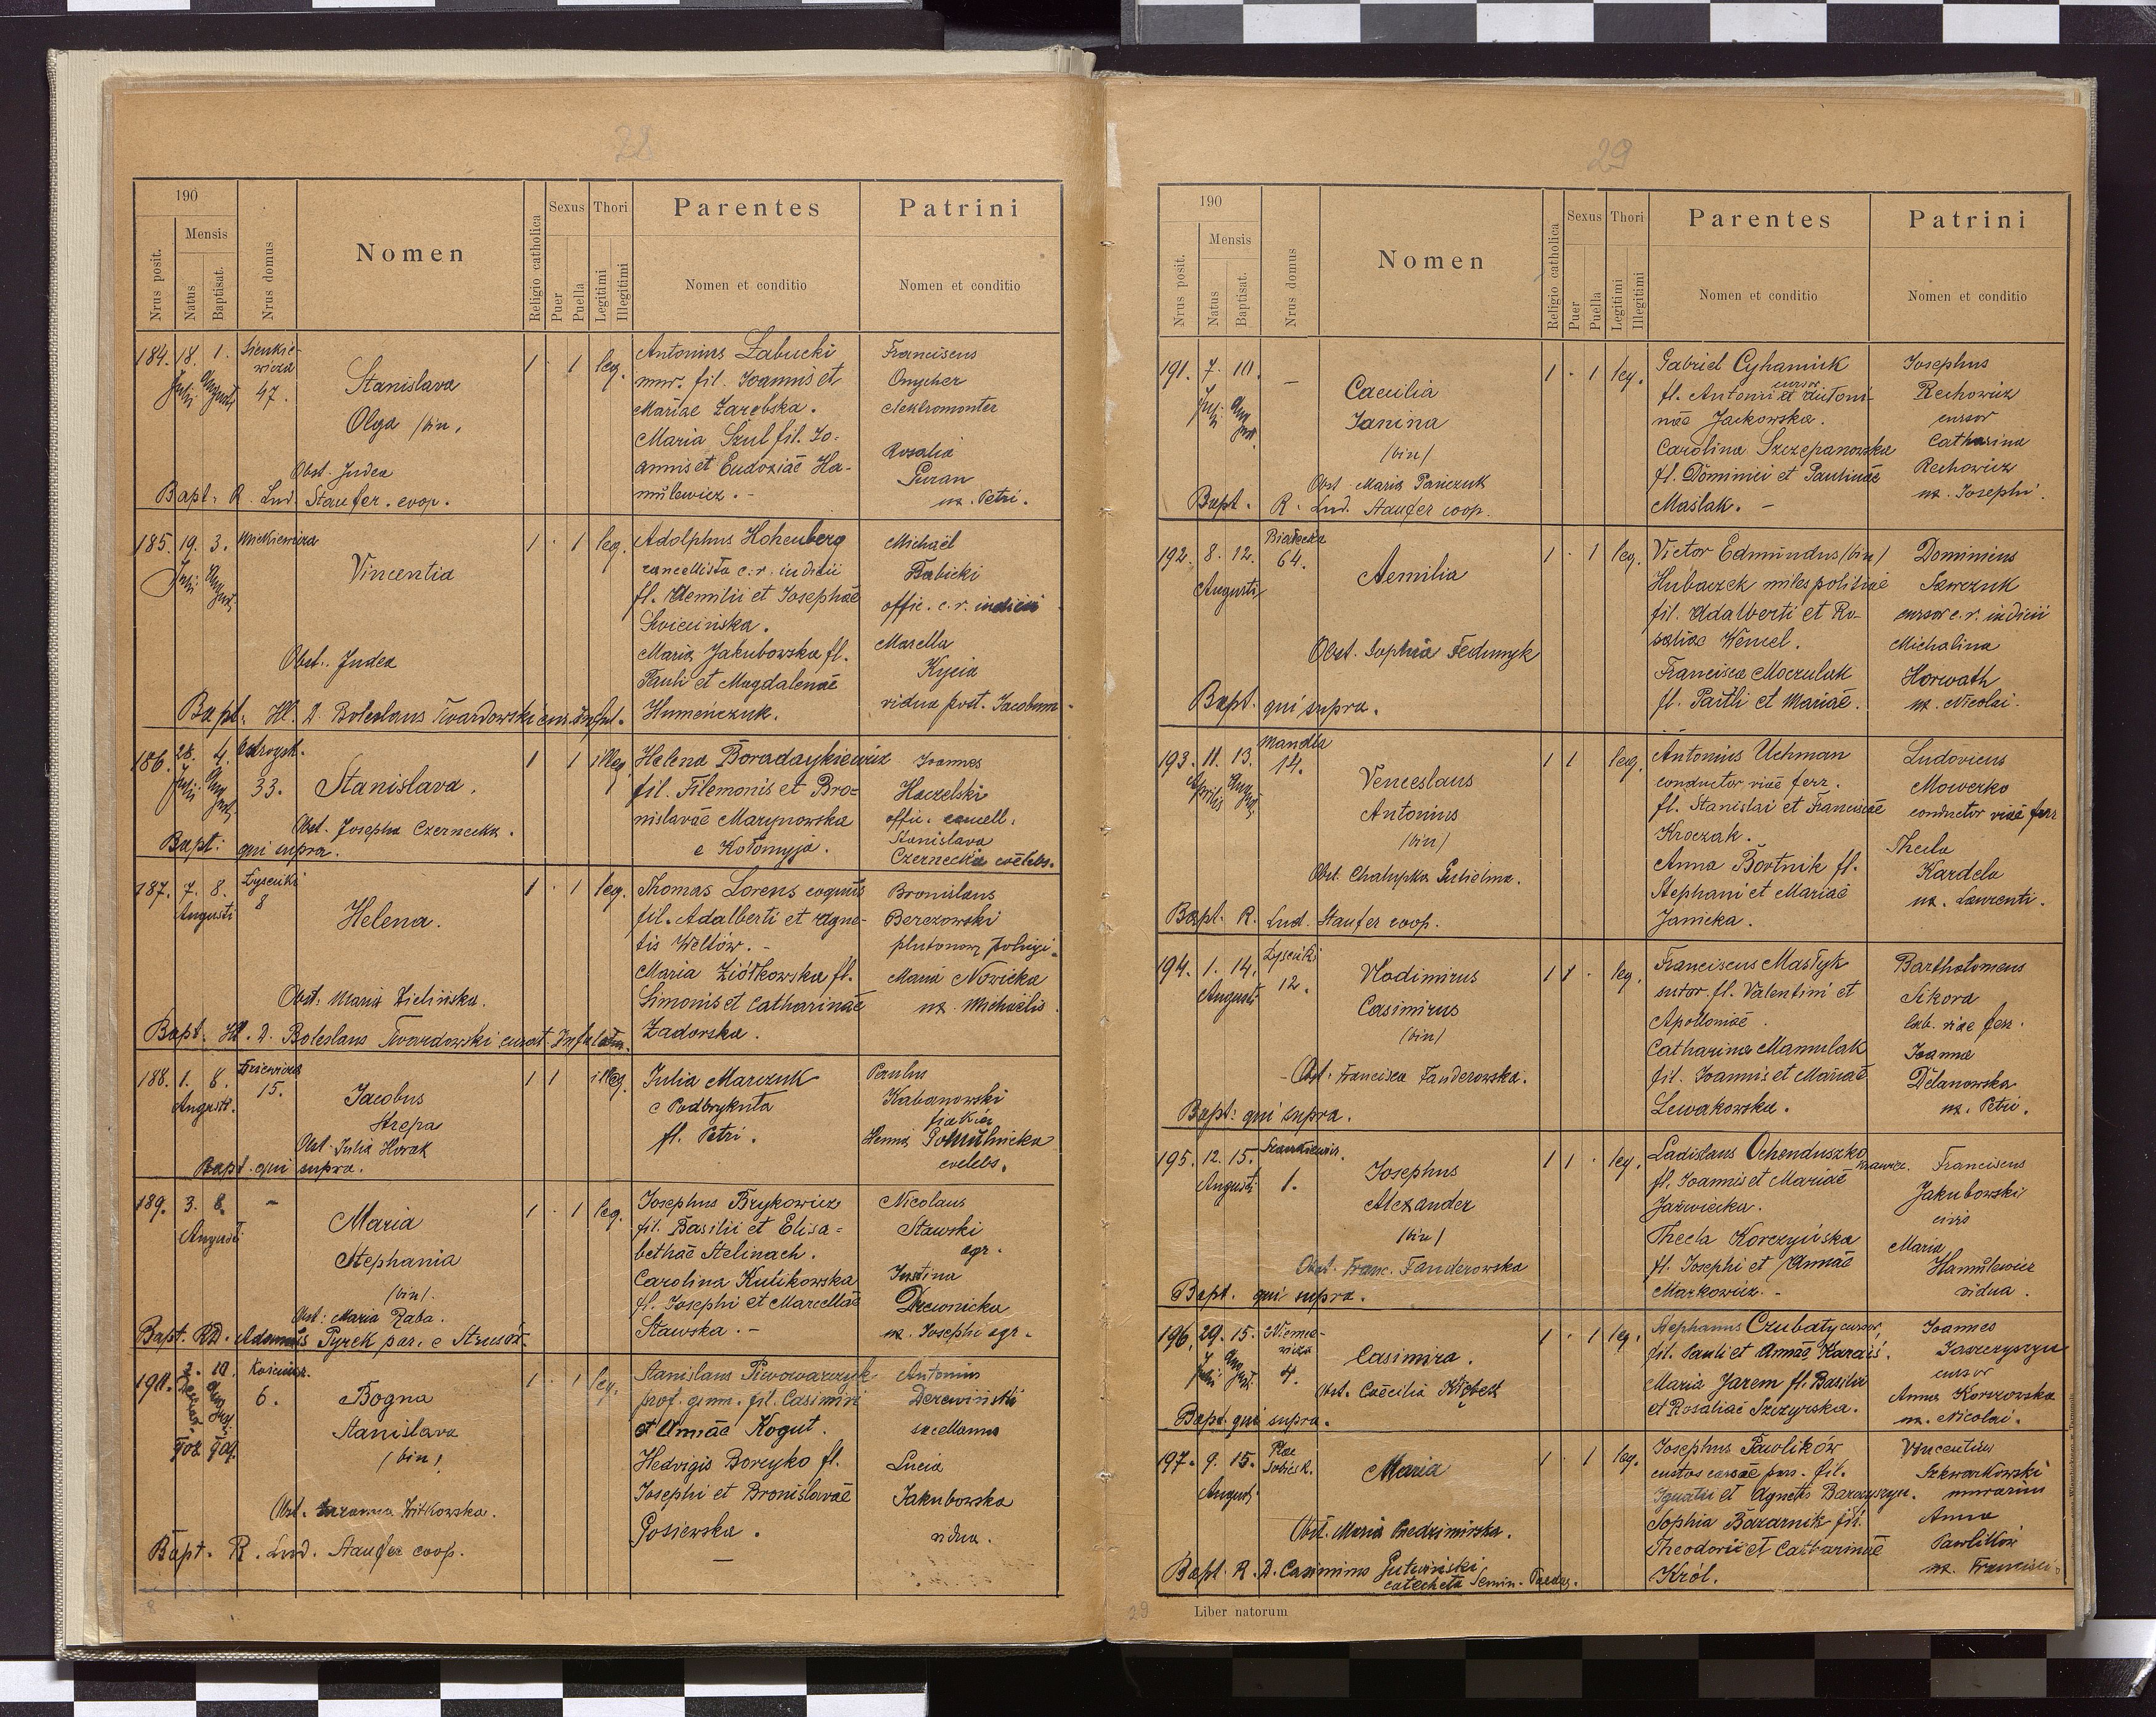 22
190
Mensis
Nrus posit.
Natus
Baptisat.
Nrus domus
Nomen
Religio catholica
Sexus
Puer
Puella
Thori
Legitimi
Illegitimi
Parentes
Nomen et conditio
Patrini
Nomen et conditio
184. 18. 1. Sienkie-
wicza
Julii Augusti 47.
Stanislava
Olga /bin/
1 · 1 leg.
Obst. Judea
Bapt: R. Lud. Staufer. coop.
Antonius Zabucki
mur. fil. Joannis et
Mariae Zarebska.
Maria Szul fil. Jo-
annis et Eudoxiae Ha-
mulewicz. -
Franciscus
Onycher
elektromonter
Rosalia
Guran
ux. Petri.
185. 19. 3. Mickiewicza
Julii August.
Vincentia
1 · 1 leg.
Obst. Judea
Bapt. Ill. D. Boleslaus Twardowski cur. Inful.
Adolphus Hohenberg
cancellista c. r. indicii
fl. Aemilii et Josephae
Maria Jakubowska fl.
Pauli et Magdalenae
Humeńczuk.
Michaël
Babicki
offic. c. r. indicii
Marella
Kycia
vidua post. Jacobum.
186. 28. 4.
Juli August 33.
Stanislava.
1 1 illeg.
Obst. Josepha Czernecka.
Bapt: qui supra.
Helena Boradaykiewicz
fil. Filemonis et Bro-
nislavae Marynowska
e Kołomyja.
Joannes
Haczelski
offic. cancell.
Stanislava
Czernecka coelebs.
187. 7. 8. Łysecki
Augusti 8
Helena.
1 · 1 leg.
Obst: Maria Zielińska.
Bapt. Ill. D. Boleslaus Twardowski curat. Infulatus.
Thomas Lorens coquus
fil. Adalberti et Agne-
tis Weltów. -
Maria Ziółkowska fl.
Simonis et Catharinae
Zadorska.
Bronislaus
Berezowski
plutonow. policyi.
Maria Nowicka
ux. Michaëlis.
188. 1. 8.
Augusti. 15.
Jacobus
Strepa
1 1 illeg.
Obst. Julia Horak
Bapt. qui supra.
Julia Marczuk
e Podbrykuta
fl. Petri.
Paulus
Kabanowski
fiakier
coelebs.
189. 3. 8. -
Augusti
Maria
Stephania
/bin/.
1 · 1 leg.
Obst: Maria Raba.
Bapt. RD. Adamus Pyrek par. e Strusów.
Josephus Brykowicz
fil. Basilii et Elisa-
bethae Stelinach.
Carolina Kulikowska
fl. Josephi et Marcellae
Stawska. -
Nicolaus
Stawski
agr.
Justina
Drewnicka
ux. Josephi agr.
190. 2. 10.
6.
Bogna
Stanislava
/bin/
1 · 1 leg.
Obst. Zuzanna Witkowska.
Bapt. R. Lud. Staufer coop.
Stanislaus Piwowarczyk
prof. gimn. fil. Casimiri
et Annae Kogut.
Hedvigis Boreyko fl.
Josephi et Bronislavae
Gosiewska.
Antonius
Derewiński
Lucia
Jakubowska
vidua.
8
29
190
Mensis
Nrus posit.
Natus
Baptisat.
Nrus domus
Nomen
Religio catholica
Sexus
Puer
Puella
Thori
Legitimi
Illegitimi
Parentes
Nomen et conditio
Patrini
Nomen et conditio
191. 7. 10. -
Juli August.
Caecilia
Janina
/bin/
1 · 1 leg.
Obst. Maria Pańczuk
Bapt. R. Lud. Staufer coop.
Gabriel Cyhaniuk
cursor
fl. Antonii et Antoni-
nae Jackowska.
Carolina Szczepanowska
fl. Dominici et Paulinae
Maślak. -
Josephus
Rechowicz
cursor
Catharina
Rechowicz
ux. Josephi.
192. 8. 12. Białecka
Augusti 64.
Aemilia
1 · 1 leg.
Obst. Sophia Fedunyk
Bapt. qui supra.
Victor Edmundus /bin/
Hubaczek miles politiae
fil. Adalberti et Ro-
saliae Wencel.
Francisca Moczulak
fl. Paulli et Mariae.
Dominicus
Szewczuk
cursor c. r. indicii
Michalina
Horwath
ux. Nicolai.
193. 11. 13. Mandla
Aprilis August. 14.
Venceslaus
Antonius
/bin/
1 1 leg.
Obst. Chalupka Gulielma.
Bapt. R. Lud. Staufer coop.
Antonius Uchman
conductor viae ferr.
fl. Stanislai et Franciscae
Kroczak.
Anna Bortnik fl.
Stephani et Mariae
Janicka.
Ludovicus
Mowerko
conductor viae ferr.
Thecla
Kardela
ux. Laurenti.
194. 1. 14. Łysecki
Augusti 12.
Vlodimirus
Casimirus
/bin/
1 1 · leg.
Obst. Francisca Fanderowska.
Bapt: qui supra.
Franciscus Mastyk
sutor. fl. Valentini et
Apolloniae.
Catharina Mamulak
fil. Joannis et Mariae
Lewakowska.
Bartholomeus
Sikora
lab. viae ferr.
Joanna
Delanowska
ux. Petri.
195. 12. 15.
Augusti 1.
Josephus
Alexander
/bin/
1 1 · leg.
Obst. Franc. Fanderowska
Bapt. qui supra.
Ladislaus Ochenduszko
krawiec.
fl. Joannis et Mariae
Jaźwiecka.
Thecla Korczyńska
fl. Josephi et Annae
Markowicz. -
Franciscus
Jakubowski
civis
Maria
Hamulewicz
vidua.
196. 29. 15. Niemce-
wicza
Juli August. 4.
Casimira.
1 · 1 leg.
Obst. Caecilia
Bapt. qui supra.
Stephanus Czubaty cursor,
fil. Pauli et Annae Karaiś.
Maria Jarem fl. Basilii
et Rosaliae Szczyrska.
Joannes
Jaszczyszyn
cursor
Anna Korszowska
ux. Nicolai.
197. 9. 15. Plac
Sobiesk.
Augusti
Maria
1 · 1 leg.
Obst. Maria Predzimirska.
Bapt. R. D. Casimirus Gutwiński,
catecheta Semin. Paedag.
Josephus Pawlików
custos
Ignatii et Agnetis Barczyszyn.
Sophia Bazarnik fil.
Theodorii et Catharinae
Król.
Vincentius
Szkwarkowski
murarius
Anna
Pawlików
ux. Francisci.
29
Liber natorum